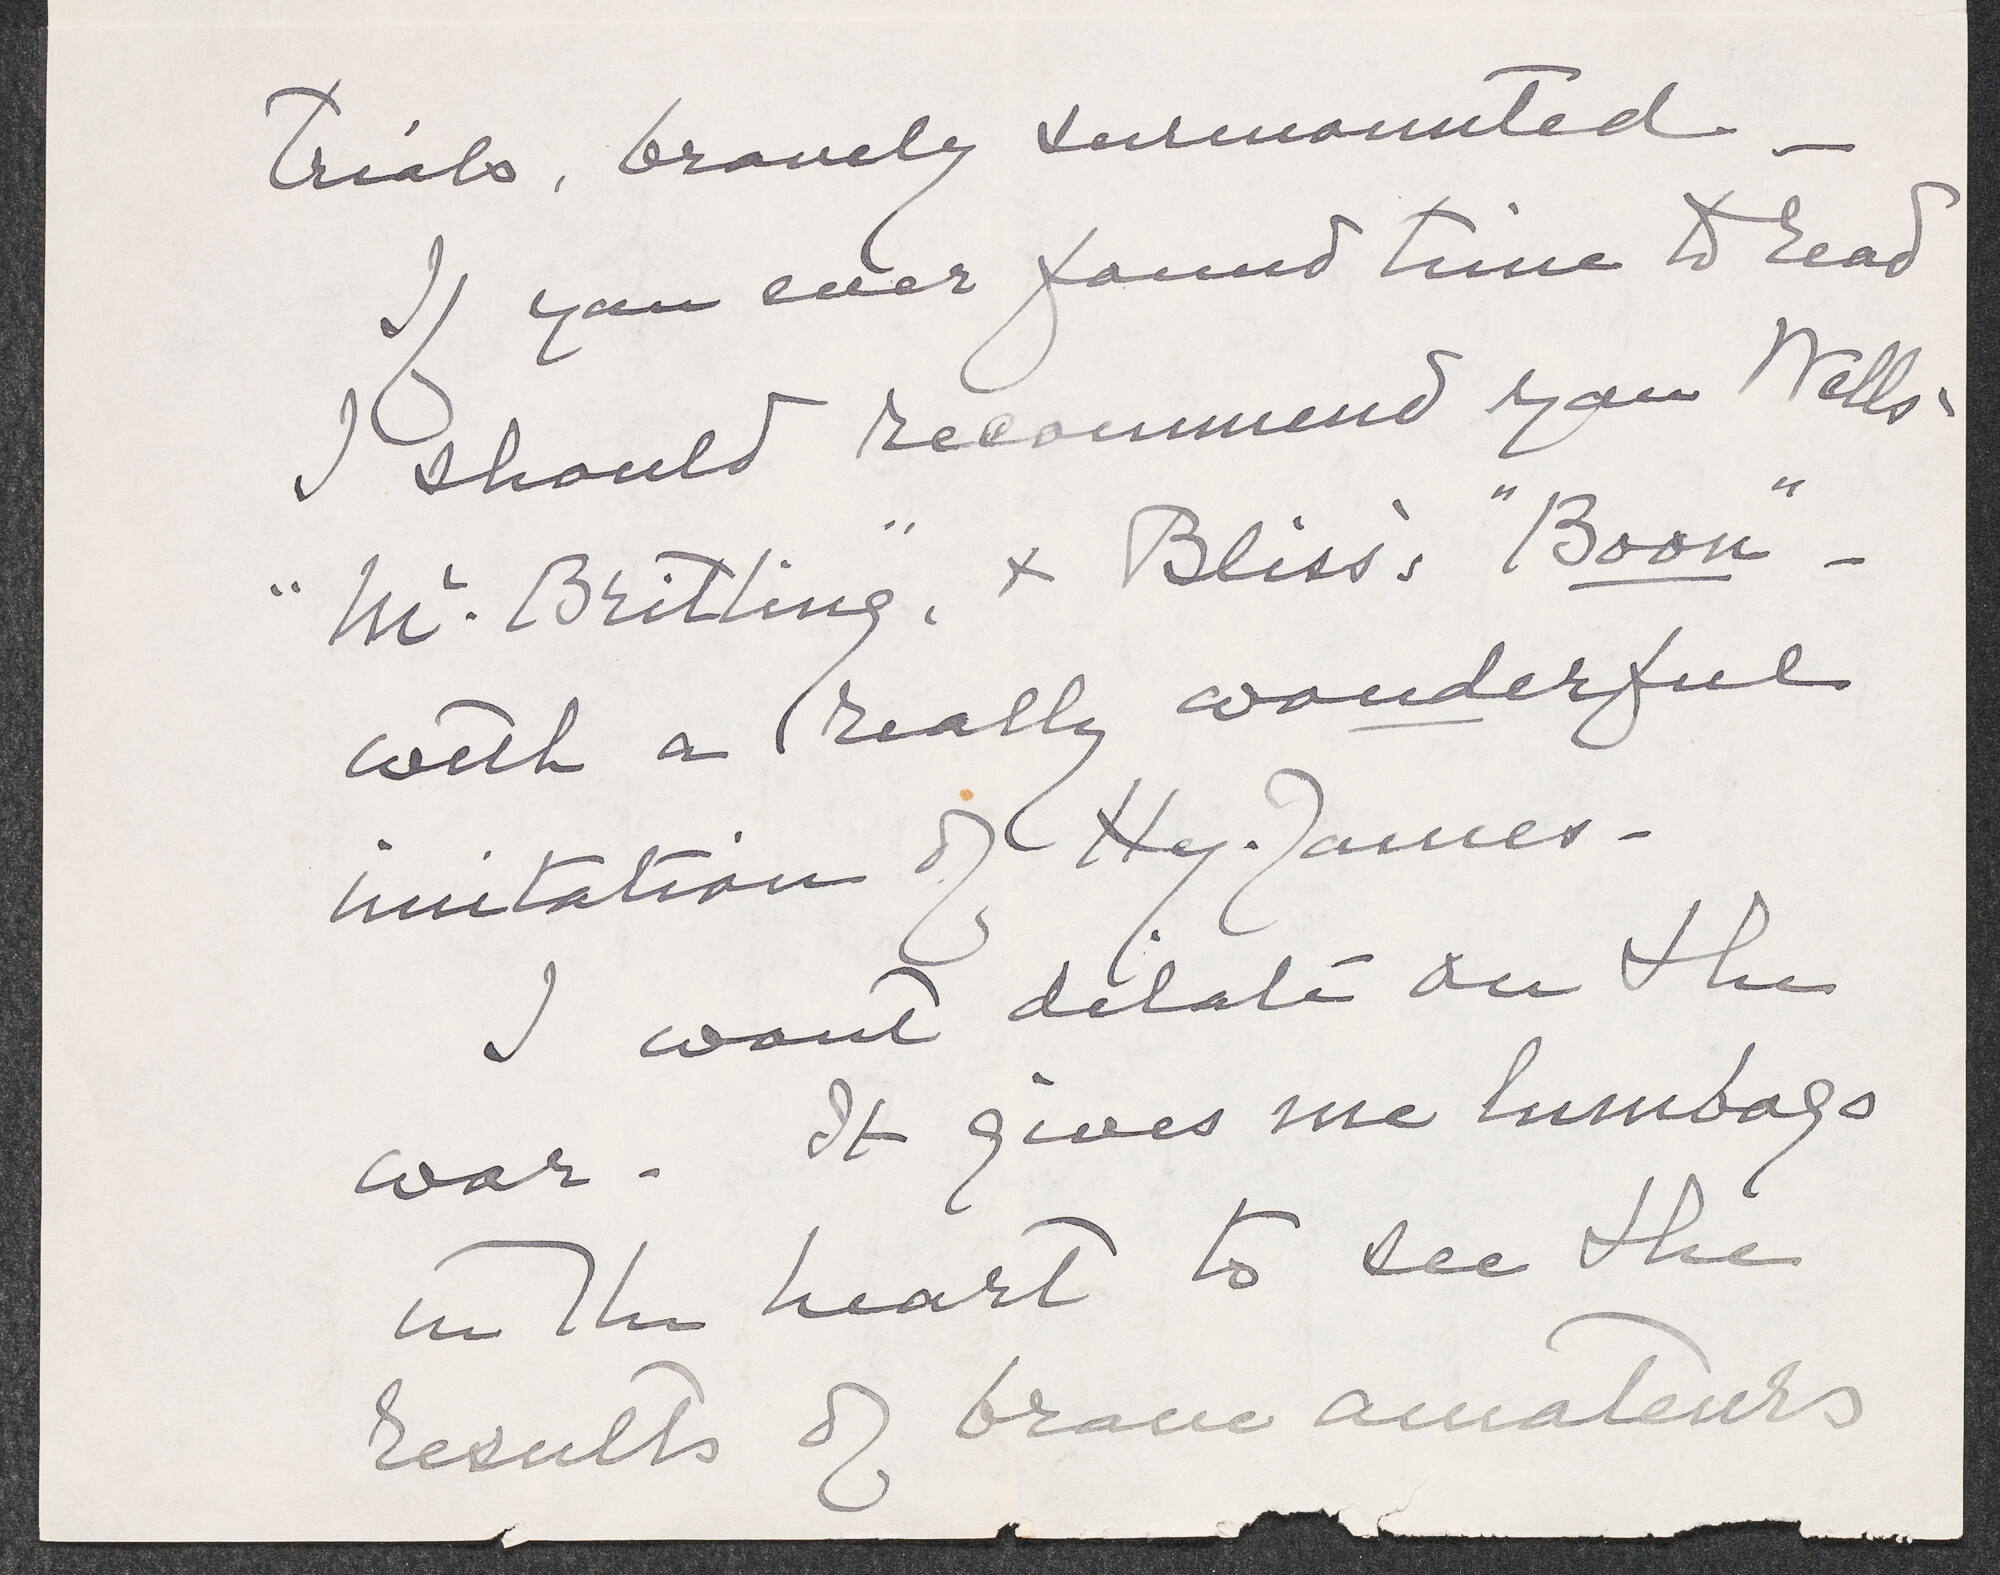 trials, bravely surmounted –
If you ever found time to read
I should recommend you Wells'
"Mr. Britling", + Bliss's "Boon" –
with a really wonderful
imitation of Hy. James –
I wont dilate on the
war – It gives me lumbago
in the heart to see the
results of brave amateurs